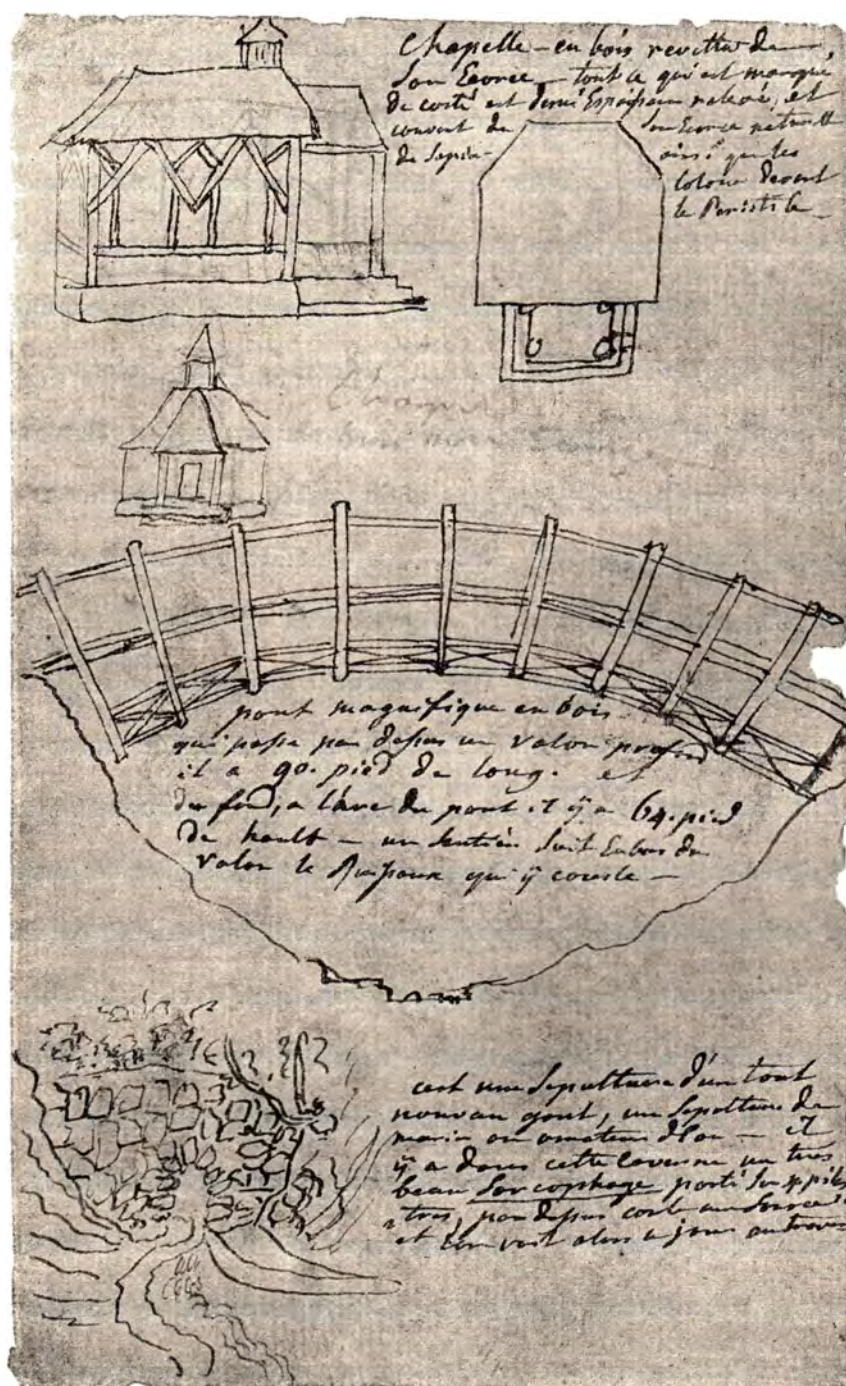 Chapelle – en bois revettu de
son Ecorce – tout ce qui est marqué
de costé est demi Espaisseur relevé, et
couvert de son Ecorce naturelle
de Sapin – ainsi que les
colone devant
le Peristile –
pont magnifique en bois
qui passe par dessus un valon profond
il a 90. pied de long. et
du fond, a l'arc du pont il ÿ a 64. pied
de hault – un sentier suit Enbas du
valon le Ruisseau qui ÿ coule –
cest une Sepulture d'un tout
nouvau gout, une Sepulture de
marin ou amateur d'Eau – il
ÿ a dans cette Caverne un tres
beau Sarcophage porté sur pila
tres, par dessus coule une Source
et l'on voit alors a jour au traver